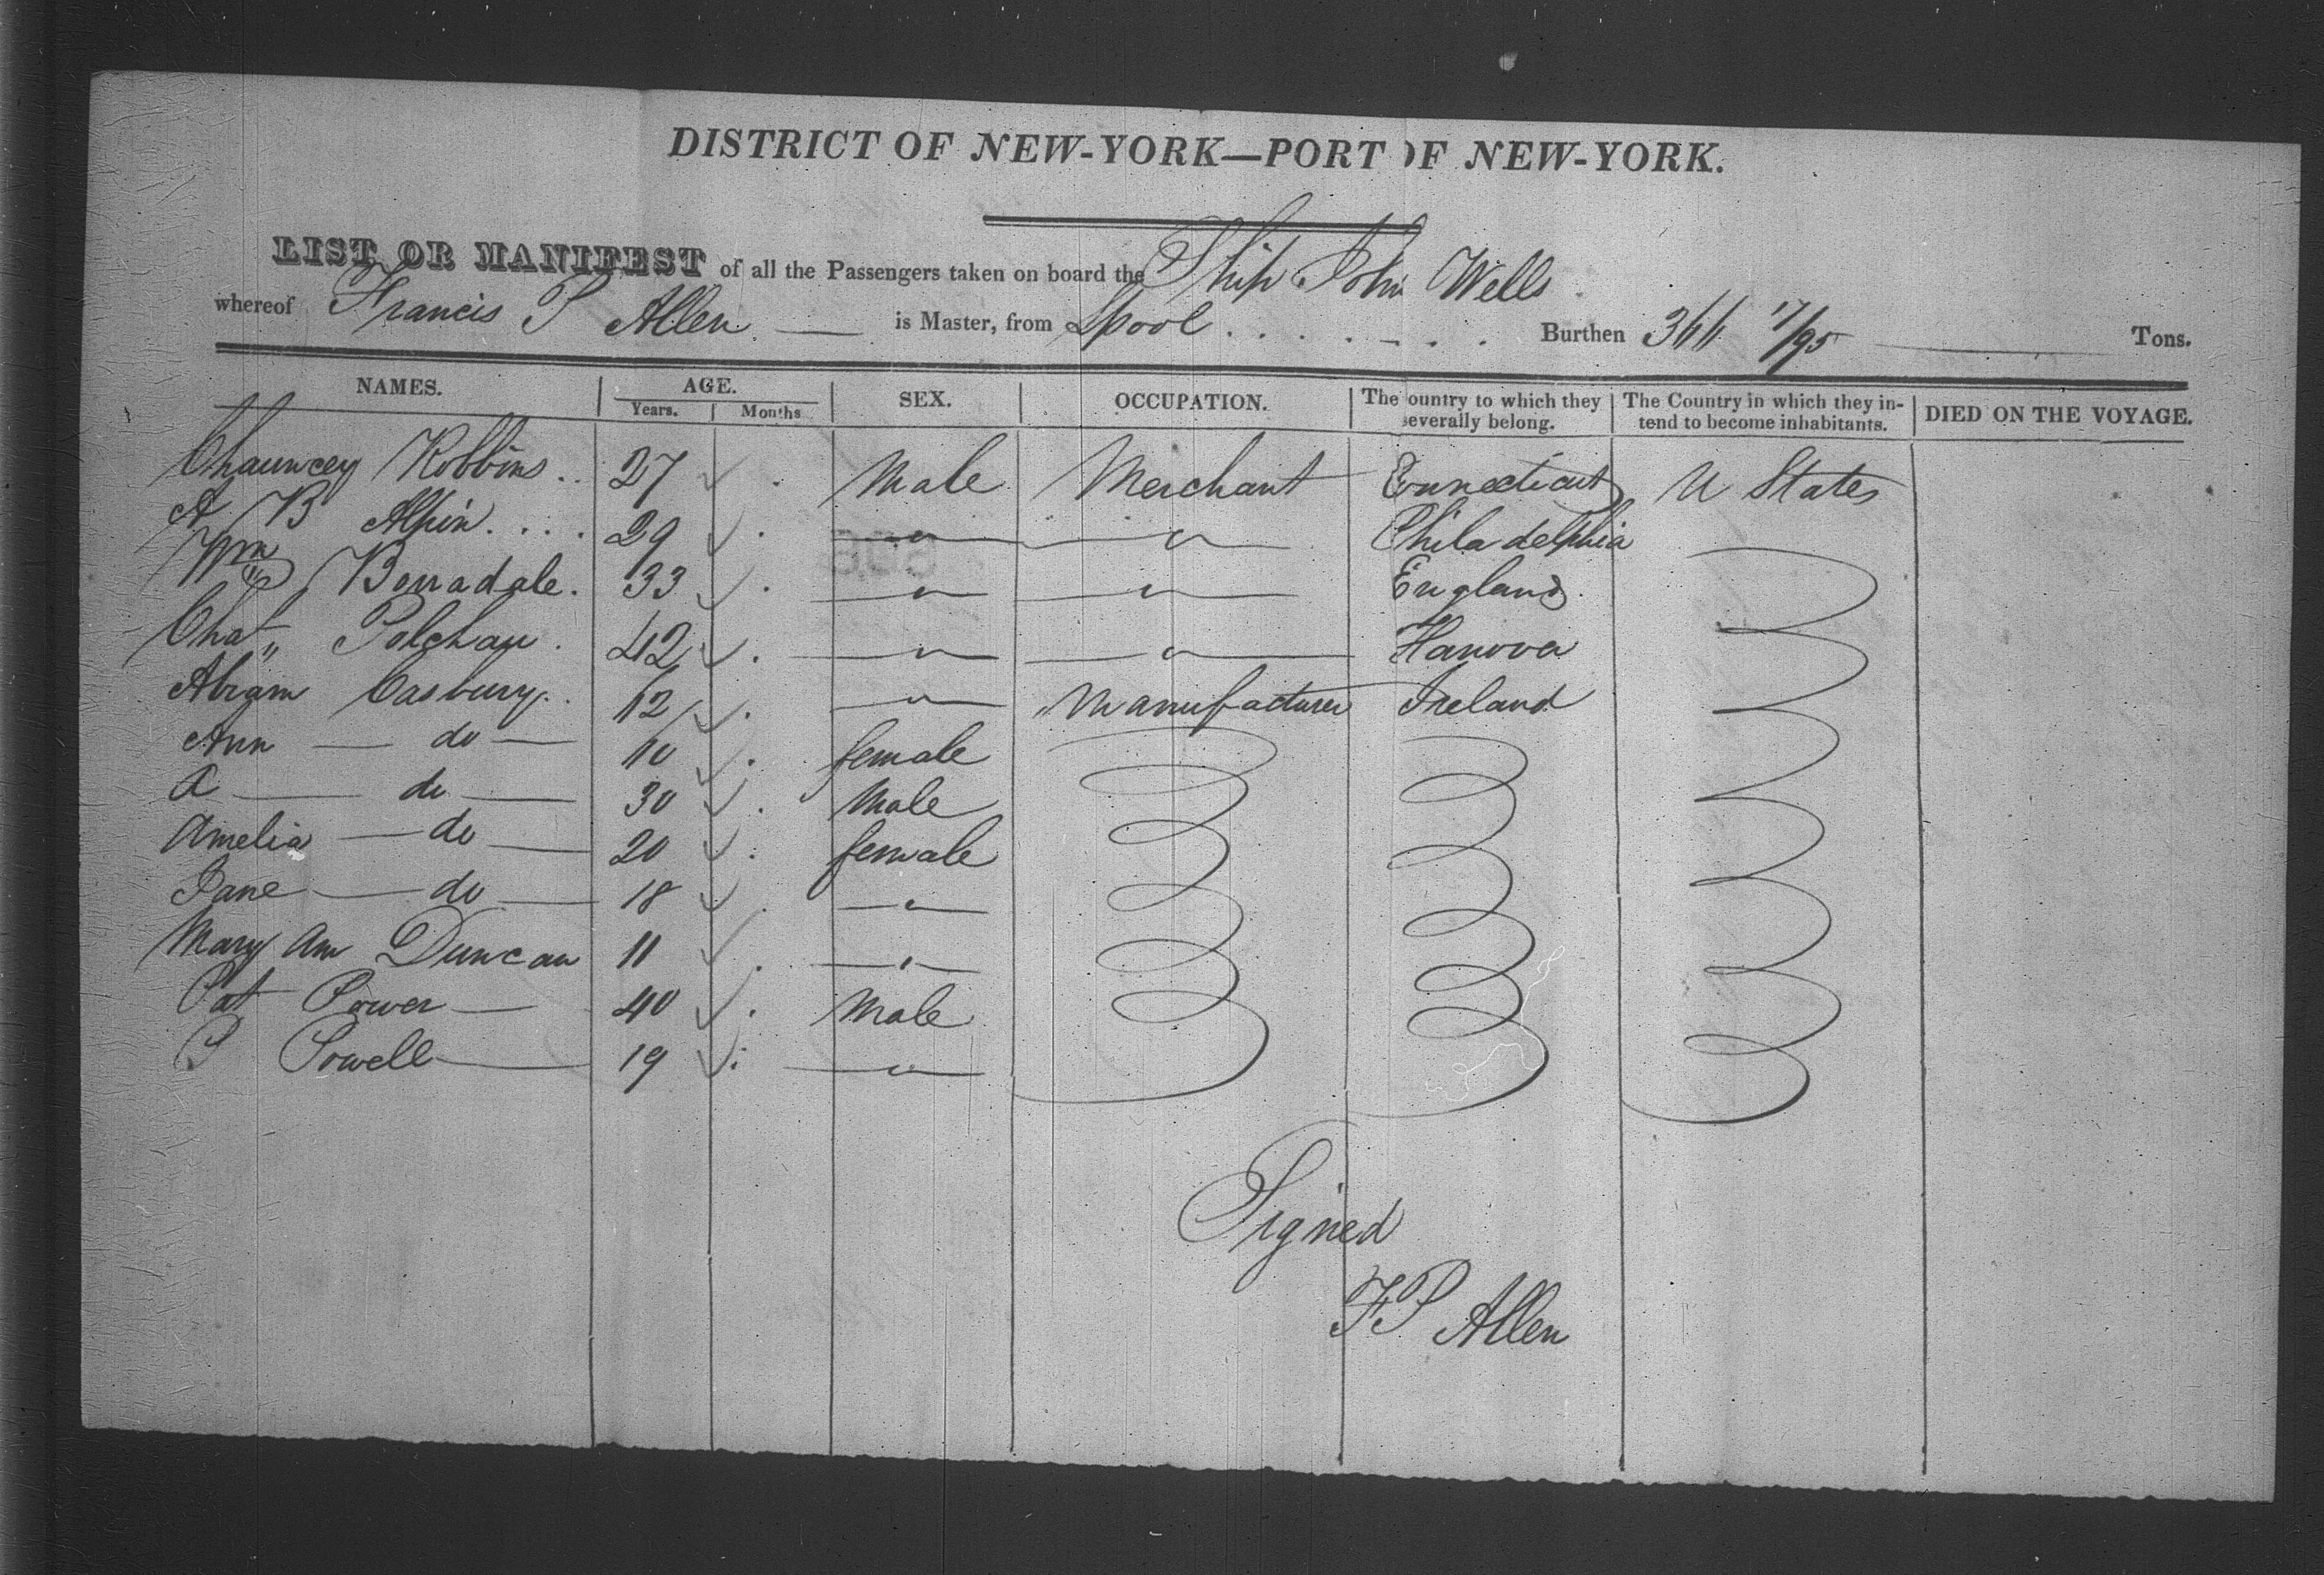 DISTRICT OF NEW-YORK—PORT OF NEW-YORK.
LIST OR MANIFEST of all the Passengers taken on board the Ship John Wells
whereof Francis P Allen — is Master, from Lpool . . . . . . . Burthen 366 17/95 — Tons.
NAMES. AGE. SEX. OCCUPATION. The ountry to which they severally belong. The Country in which they intend to become inhabitants. DIED ON THE VOYAGE.
Years. Months
Chauncey Robbins .. 27 Male Merchant Connecticut U States
A B Alpin . . . . 29 — " — — " — Philadelphia
Wm Borradale . 33 — " — — " — England
Chas " Polchau . 42 — " — — " — Hanover
Abram Casbury . . 12 — " — Manufacturer Ireland
Ann — do — 10 female
A — do — 30 Male
Amelia — do — 20 female
Jane — do — 18 — " —
Mary Ann Duncan 11 — " —
Pat Power — 40 Male
P Powell — 19 — " —
Signed
F P Allen